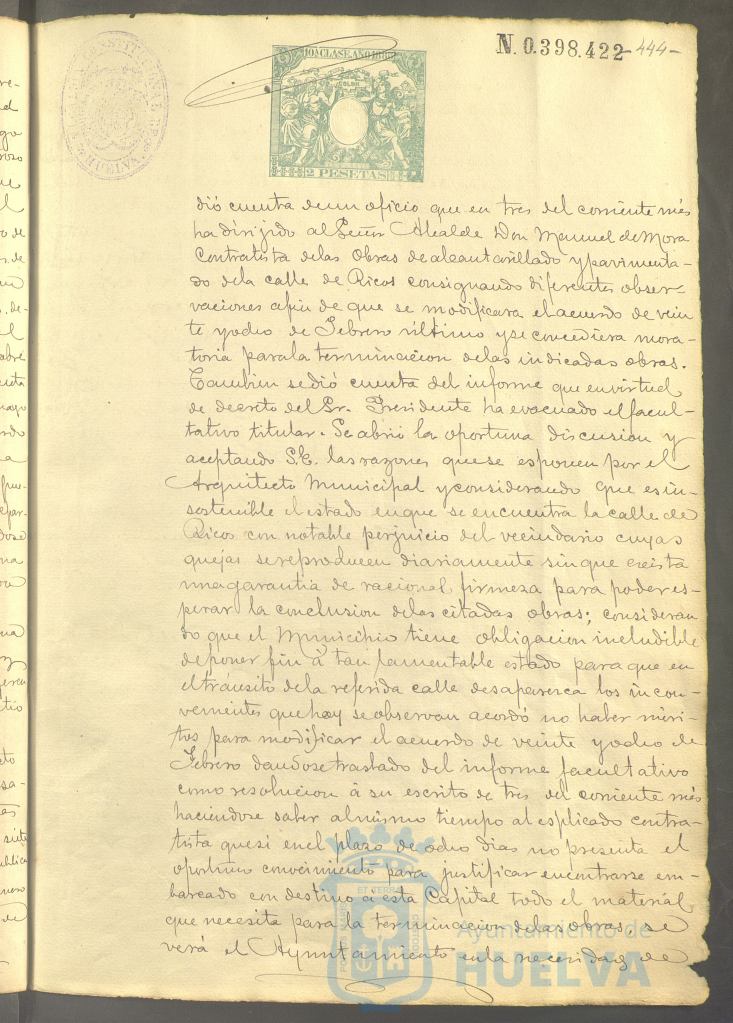 N. 0.398.422 -444-
10ª CLASE. AÑO 18
2 PESETAS
HUELVA
dió cuenta de un oficio que en tres del corriente més
ha dirijido al Señor Alcalde Don Manuel de Mora
Contratista delas Obras de alcantarillado y pavimenta-
do dela calle de Ricos consignando diferentes obser-
vaciones afin de que se modificara el acuerdo de vein
te yocho de Febrero último y se concediera mora-
toria para la terminacion delas indicadas obras.
Tambien se dió cuenta del informe que en virtud
de decreto del Sr. Presidente ha evacuado el facul-
tativo titular. Se abrió la oportuna discusion y
aceptando S.E. las razones que se esponen por el
Arquitecto Municipal y considerando que es in-
sostenible el estado en que se encuentra la calle de
Ricos con notable perjuicio del vecindario cuyas
quejas se reproducen diariamente sin que exista
una garantia de racional firmeza para poder es-
perar la conclusion delas citadas obras; consideran
do que el Municipio tiene obligacion ineludible
de poner fin á tan lamentable estado para que en
el tránsito dela referida calle desaparezca los incon-
venientes que hoy se observan acordó no haber méri-
tos para modificar el acuerdo de veinte yocho de
Febrero dandose traslado del informe facultativo
como resolucion á su escrito de tres del corriente més
haciendose saber al mismo tiempo al esplicado contra-
tista que si en el plazo de ocho dias no presenta el
oportuno conocimiento para justificar encontrarse em-
barcado con destino a esta Capital todo el material
que necesita para la terminacion delas obras, se
verá el Ayuntamiento en la necesidad de
Ayuntamiento de
HUELVA